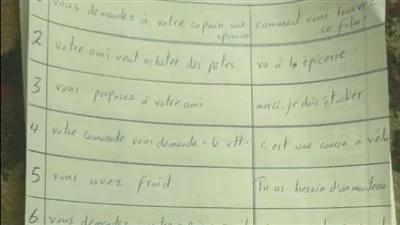 vous demandez à votre copain une opinion
comment vous trouvez ce film?
2 votre ami veut acheter des pâtes
va à la épicerie
3 vous proposez à votre ami
merci, je dois étudier
4 votre camarade vous demande le vtt
c'est une course à vélo
5 vous avez froid
Tu as besoin d'un manteau
6 vous demandez